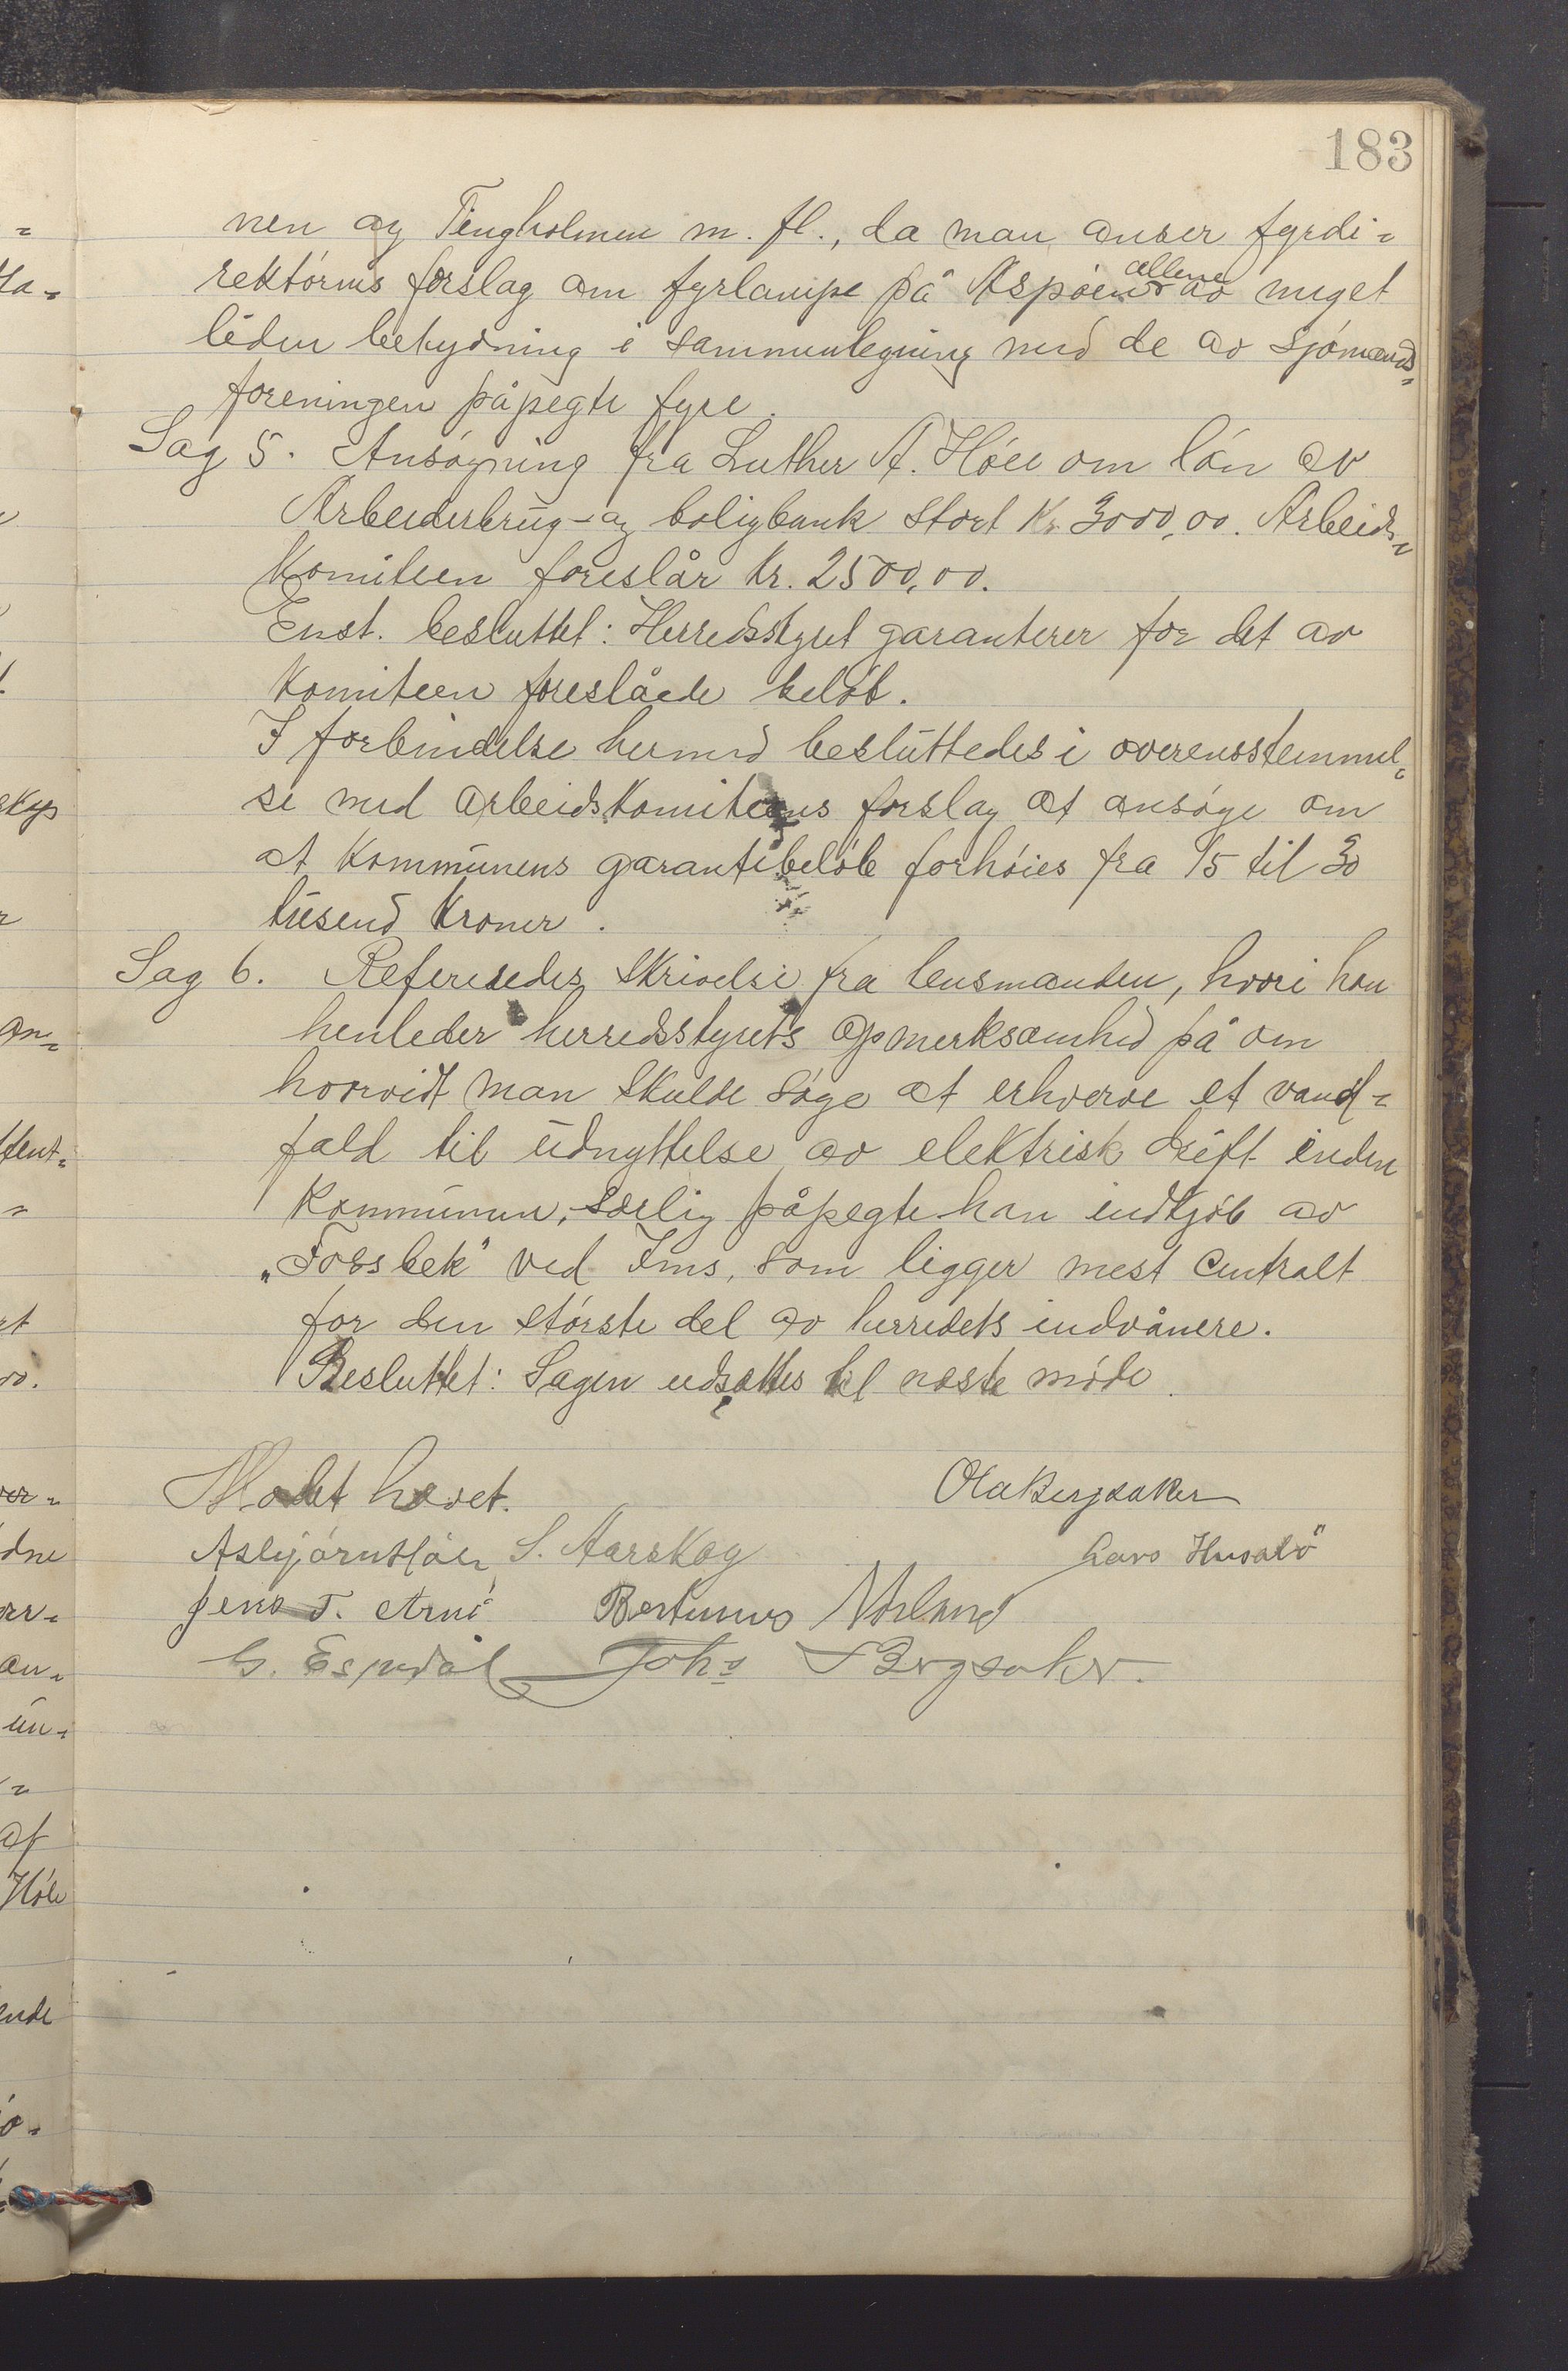 183
nen og Tingholmen m. fl., da man anser fyrdi=
rektørens forslag om fyrlampe på Aspøen allene av meget
liden betydning i sammenlegning med de av Sjømænds=
foreningen påpegte fyre.
Sag 5. Ansøgning fra Luther A. Høle om lån av
Arbeiderbrug- og boligbank stort Kr. 3000,00. Arbeids=
Komiteen foreslår Kr. 2500,00.
Enst. besluttet: Herredsstyret garanterer for det av
Komiteen foreslåede beløb.
I forbindelse hermed besluttedes i overensstemmel=
se med arbeidskomiteens forslag at ansøge om
at Kommunens garantibeløb forhøies fra 15 til 30
tusend Kroner.
Sag 6. Refereredes skrivelse fra lensmanden, hvori han
henleder herredsstyrets opmerksomhed på om
hvorvidt man skulde søge at erhverve et vand=
fald til udnyttelse av elektrisk drift inden
Kommunen, særlig påpegte han indkjøb av
„Fossbek" ved Ims, som ligger mest centralt
for den største del av herredets indvånere.
Besluttet: Sagen udsættes til næste møde.
Mødet hævet.
Ola Bergsaker
Asbjørn Høle S. Aarskog
Lars Husabø
Jens T. Arnö Bertinius Norland
G. Espedal Johs Bergsaker.